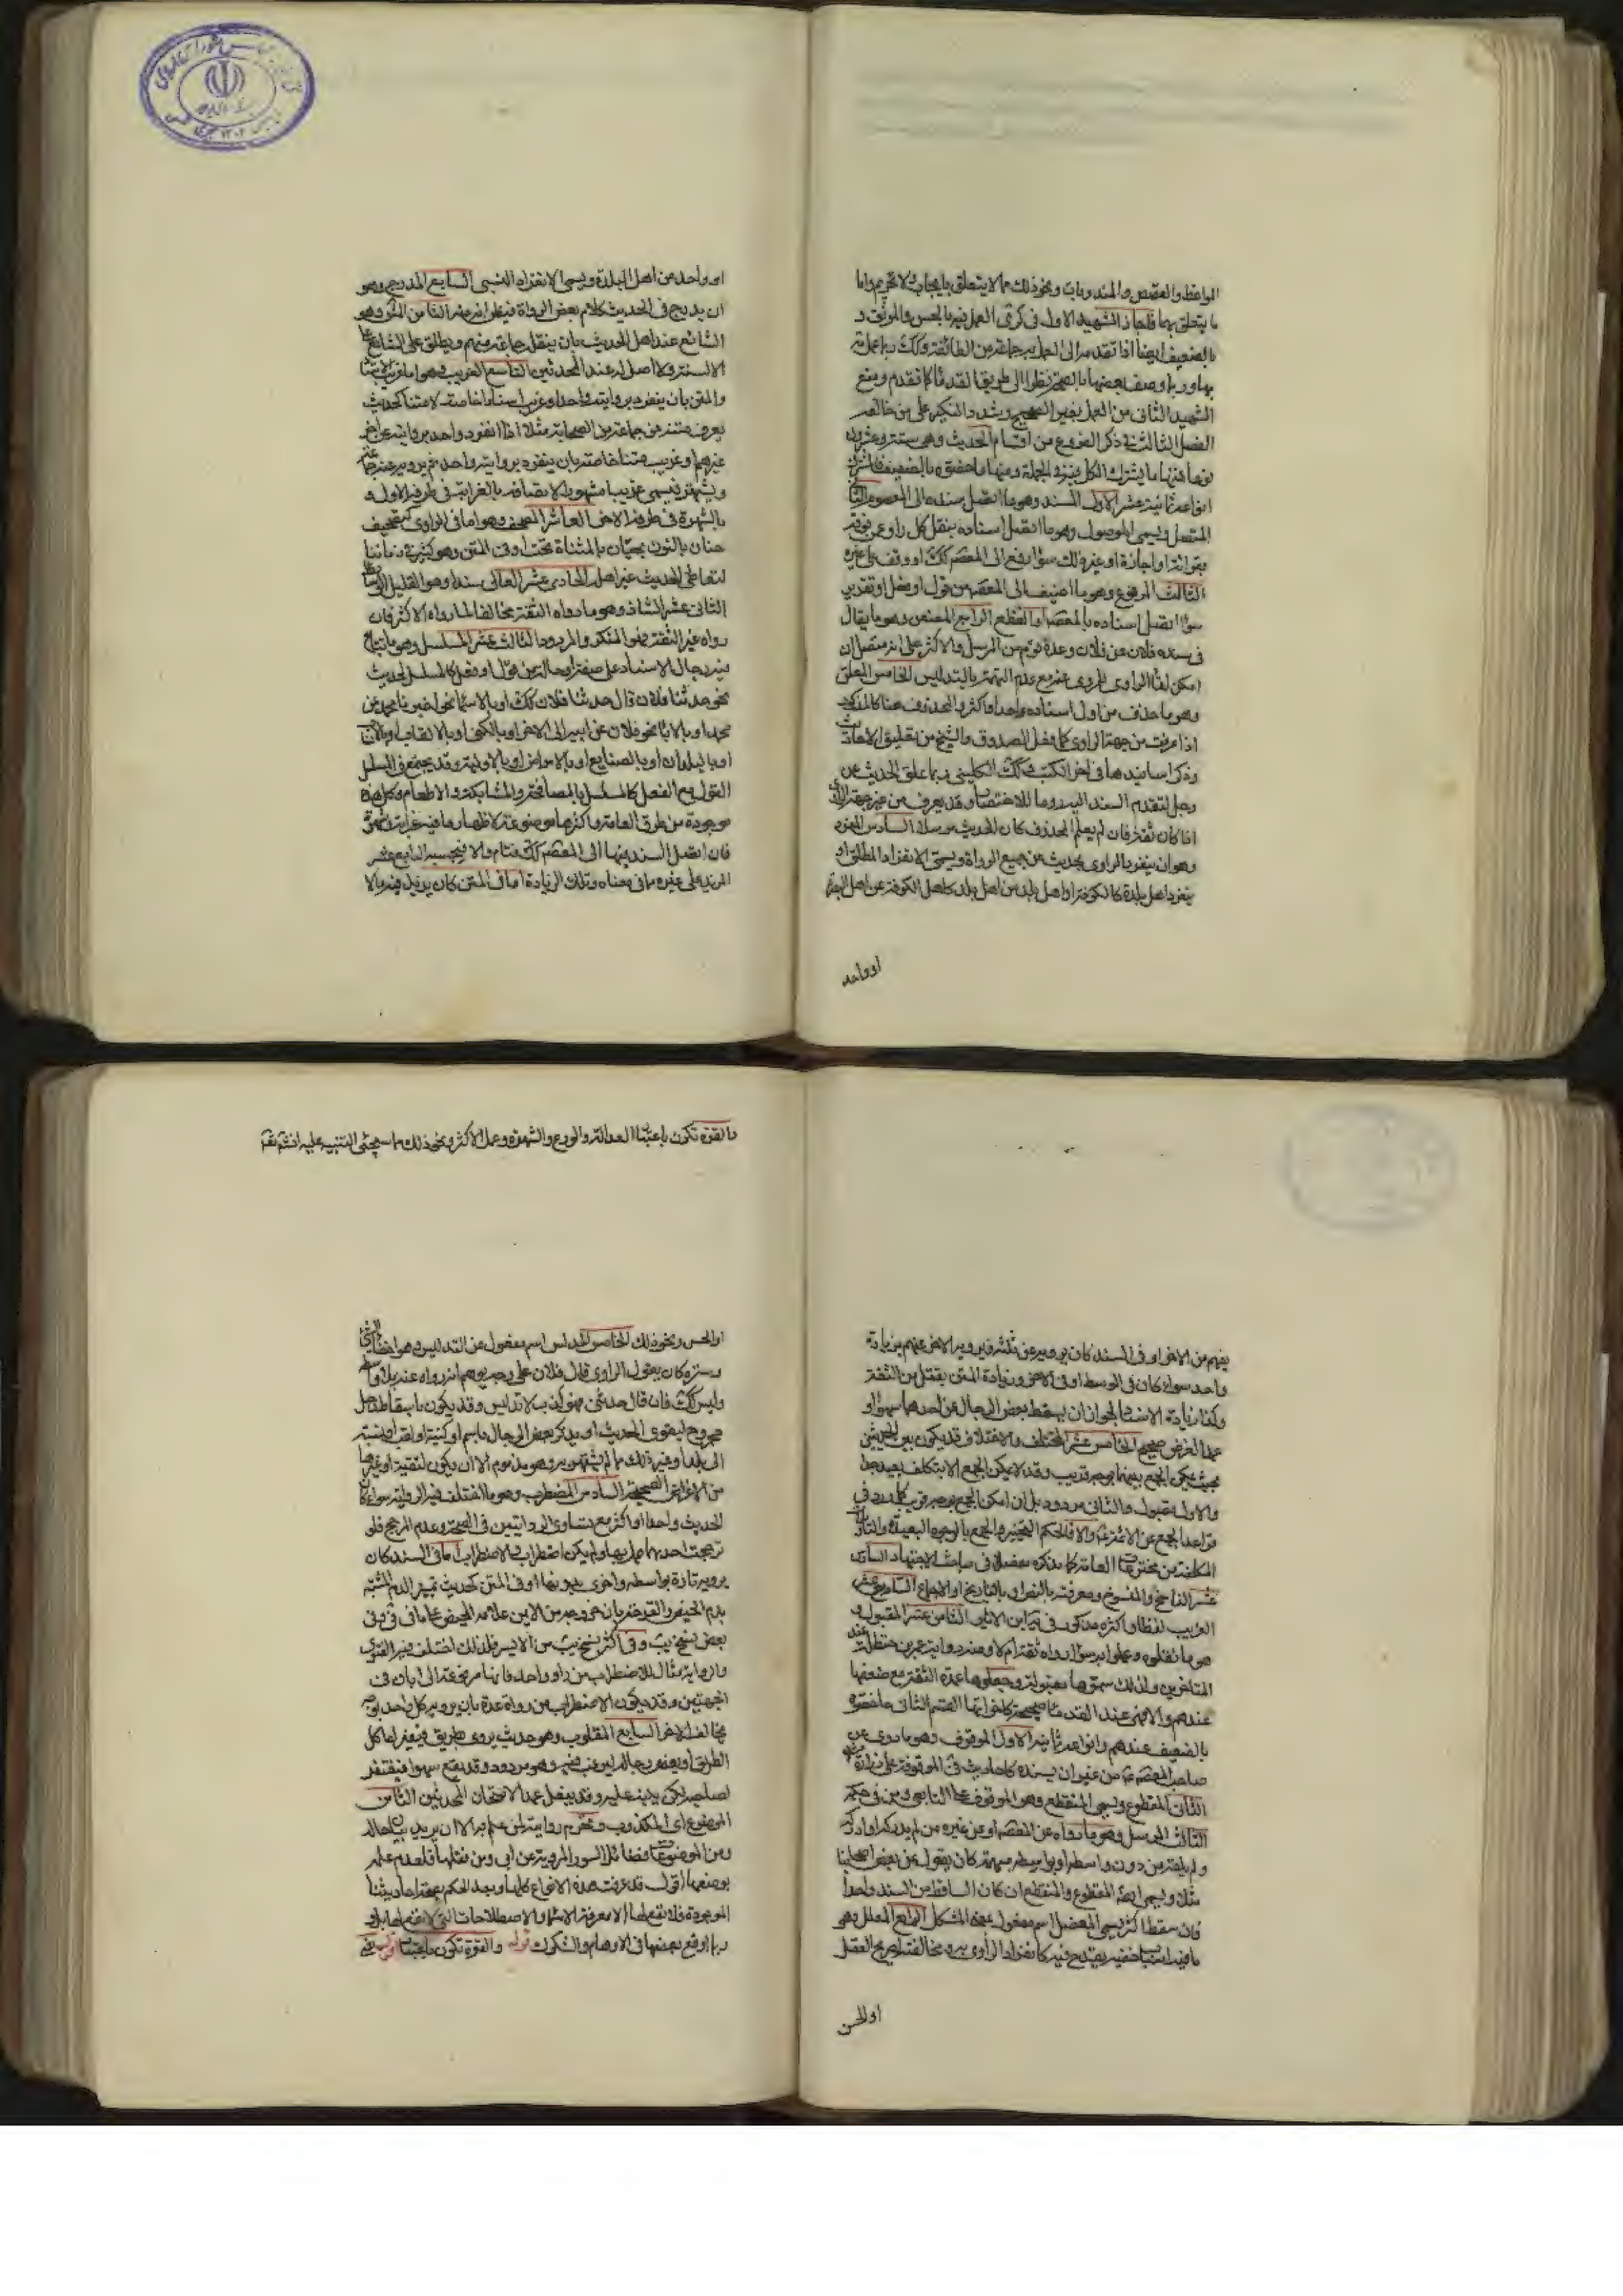 المواعظ والقصص والمندوبات ونحو ذلك مما لا يتعلق بايجاب ولا تحريم واما
ما يتعلق بهما فاجاز الشهيد الاول في كرى العمل فيه بالحسن والموثق و
بالضعيف ايضا اذا تقدم الى العمل به جماعة من الطائفة وكك
بها وربما وصف بعضها بالصحة نظرا الى طريقة القدماء كما تقدم ومنع
الشهيد الثاني من العمل بغير الصحيح وشدد النكير على من خالفه
الفصل الثالث في ذكر الفروع من اقسام الحديث وهي ستة وعشرون
نوعا فمنها ما يشترك الكل فيه في الجملة ومنها ما اختص بالضعيف
انواعه ثمانية عشر الاول المسند وهو ما اتصل سنده الى المعصوم الثاني
المتصل ويسمى الموصول وهو ما اتصل اسناده بنقل كل راو عمن فوقه
بقرائة او اجازة او غير ذلك سواء رفع الى المعصوم كك او وقف على غيره
الثالث المرفوع وهو ما اضيف الى المعصوم من قول او فعل او تقرير
سواء اتصل اسناده بالمعصوم او انقطع الرابع المعنعن وهو ما يقال
في سنده فلان عن فلان وعده قوم من المرسل والاكثر على انه متصل ان
امكن لقاء الراوي للمروي عنه مع عدم التهمة بالتدليس الخامس المعلق
وهو ما حذف من اول اسناده واحد او اكثر والمحذوف هنا كالمذكور
اذا عرفت من جهة الراوي كما فعل الصدوق والشيخ من تعليق الاحاديث
وذكر اسانيدها في اخر الكتب وكك الكليني ربما علق الحديث عن
رجل لتقدم السند اليه روما للاختصار وقد يعرف من غير جهة الراوي
اذا كان ثقة فان لم يعلم المحذوف كان الحديث مرسلا السادس المفرد
وهو ان ينفرد الراوي بحديث عن جميع الرواة ويسمى الانفراد المطلق او
ينفرد اهل بلدة كالكوفة او اهل بلد من اهل بلد كاهل الكوفة عن اهل البصرة
او واحد
او واحد من اهل البلدة ويسمى الانفراد النسبي السابع المدرج وهو
ان يدرج في الحديث كلام بعض الرواة فيظن انه منه الثامن المشهور وهو
الشائع عند اهل الحديث بان ينقله جماعة منهم ويطلق على الشائع على
الالسنة ولا اصل له عند المحدثين التاسع الغريب وهو اما غريب اسنادا
والمتن بان ينفرد بروايته واحد او غريب اسنادا خاصة لا متنا كحديث
يعرف متنه من جماعة من الصحابة مثلا اذا انفرد واحد بروايته عن اخر
غيرهم او غريب متنا خاصة بان ينفرد بروايته واحد ثم يرويه عنه جماعة
ويشتهر فيسمى غريبا مشهورا لاتصافه بالغرابة في طرفه الاول و
بالشهرة في طرفه الاخر العاشر المصحف وهو اما في الراوي كتصحيف
حنان بالنون بحيان بالمثناة تحت او في المتن وهو كثير في زماننا
لتعاطي الحديث غير اهله الحادي عشر العالي سندا وهو القليل الوسائط
الثاني عشر الشاذ وهو ما رواه الثقة مخالفا لما رواه الاكثر فان
رواه غير الثقة فهو المنكر والمردود الثالث عشر المسلسل وهو ما تتابع
فيه رجال الاسناد على صفة او حالة من قول او فعل كالمسلسل بحديث
نحو حدثنا فلان قال حدثنا فلان كك او بالاسماء نحو اخبرنا محمد عن
محمد او بالاباء نحو فلان عن ابيه الى الاخر او بالكنى او بالالقاب
او بالبلدان او بالصنايع او بالامراض او بالاولية وقد يجتمع في السلسل
القول مع الفعل كالمسلسل بالمصافحة والمشابكة والاطعام وكل هذه
موجودة من طرق العامة واكثرها موضوعة لاظهار ما فيه غرابة
فان اتصل السند فيها الى المعصوم كك فتام والا فبحسبه الرابع عشر
المزيد على غيره مما في معناه وتلك الزيادة اما في المتن كان يزيد فيه ما لا
يفهم من الاخر او في السند كان يرويه عن ثلثة ويرويه الاخر عنهم بزيادة
واحد سواء كان في الوسط او في الاخر وزيادة المتن تقبل من الثقة
وكذا زيادة الاسناد لجواز ان يسقط بعض الرجال عن احدهما سهوا او
عمدا لغرض صحيح الخامس عشر المختلف والاختلاف قد يكون بين الحديثين
بحيث يمكن الجمع بينهما بوجه قريب وقد لا يمكن الجمع الا بتكلف بعيد جدا
والاول مقبول والثاني مردود بل ان امكن الجمع بوجه قريب
قواعد الجمع عن الائمة والا فالحكم التخيير والجمع بالوجوه البعيدة
المتكلفة من مخترعات العامة كما سنذكره مفصلا في مباحث الاجتهاد السادس
عشر الناسخ والمنسوخ ومعرفته بالنص او بالتاريخ او الاجماع السابع عشر
الغريب لفظا واكثره مذكور في نهاية ابن الاثير الثامن عشر المقبول و
هو ما نقلوه وعملوا به سواء رواه ثقة ام لا ومنه رواية عمر بن حنظلة عند
المتاخرين ولذلك سموها مقبولة وجعلوها عمدة الفقه مع ضعفها
عندهم والا فهي عند القدماء صحيحة كاخواتها القسم الثاني ما اختص
بالضعيف عندهم وانواعه ثمانية الاول الموقوف وهو ما روي عن
صاحب المعصوم من غير ان يسنده كاحاديث الموقوفة على زرارة
الثاني المقطوع ويسمى المنقطع وهو الموقوف على التابعي ومن في حكمه
الثالث المرسل وهو ما رواه عن المعصوم او عن غيره من لم يدركه او ادركه
ولم يلقه من دون واسطة او بواسطة مبهمة كان يقول عن بعض اصحابنا
مثلا ويسمى ايضا المقطوع والمنقطع ان كان الساقط من السند واحدا
فان سقط اكثر يسمى المعضل اسم مفعول بمعنى المشكل الرابع المعلل وهو
ما فيه اسباب خفية يقدح فيه كانفراد الراوي به ومخالفته لصريح العقل
او الحس
بالقوة تكون باعتبار العدالة والورع والشهرة وعمل الاكثر ونحو ذلك مما سيجئ التنبيه عليه انشاء الله تعالى
او الحس ونحو ذلك الخامس المدلس اسم مفعول من التدليس وهو اخفاء الشيء
وستره كان يقول الراوي قال فلان على وجه يوهم انه رواه عنه بلا واسطة
وليس كك فان قال حدثني فهو كذب لا تدليس وقد يكون باسقاط رجل
مجروح ليقوى الحديث او يذكر بعض الرجال باسم او كنية او لقب او نسبة
الى بلد او غير ذلك مما لم يشتهر به وهو مذموم الا ان يكون لتقية او غيرها
من الاغراض الصحيحة السادس المضطرب وهو ما اختلف فيه الرواية سواء كان
الحديث واحدا او اكثر مع تساوي الروايتين في الصحة وعدم المرجح فلو
ترجحت احديهما عمل بها ولم يكن اضطراب والاضطراب اما في السند كان
يرويه تارة بواسطة واخرى بدونها او في المتن كحديث تمييز الدم المشتبه
بدم الحيض والقرحة بان خروجه من الايمن علامة الحيض كما في في وفي
بعض نسخ يب وفي اكثر نسخ يب من الايسر فلذلك اختلف فيه الفتوى
والرواية مثال للاضطراب من راو واحد فانها مرفوعة الى ابان في
الجهتين وقد يكون الاضطراب من رواة عدة بان يرويه كل واحد بوجه
مخالف للاخر السابع المقلوب وهو حديث يروى بطريق فيغير اما كل
الطريق او بعض رجاله ليرغب فيه وهو مردود وقد يقع سهوا فيغتفر
لصاحبه لكن ينبه عليه وقد يفعل عمدا لامتحان المحدثين الثامن
الموضوع اي المكذوب ويحرم روايته لمن علم به الا ان يريد بيان حاله
ومن الموضوعات فضائل السور المروية عن ابي ومن نقلها فلعدم علمه
بوضعها اقول قد عرفت هذه الانواع كلها وبعد الحكم بصحة احاديثنا
الموجودة فلا نفع لها الا معرفة الاسماء والاصطلاحات التي لا نفع لها بل و
ربما اوقع بعضها في الاوهام والشكوك قوله والقوة تكون باعتبار